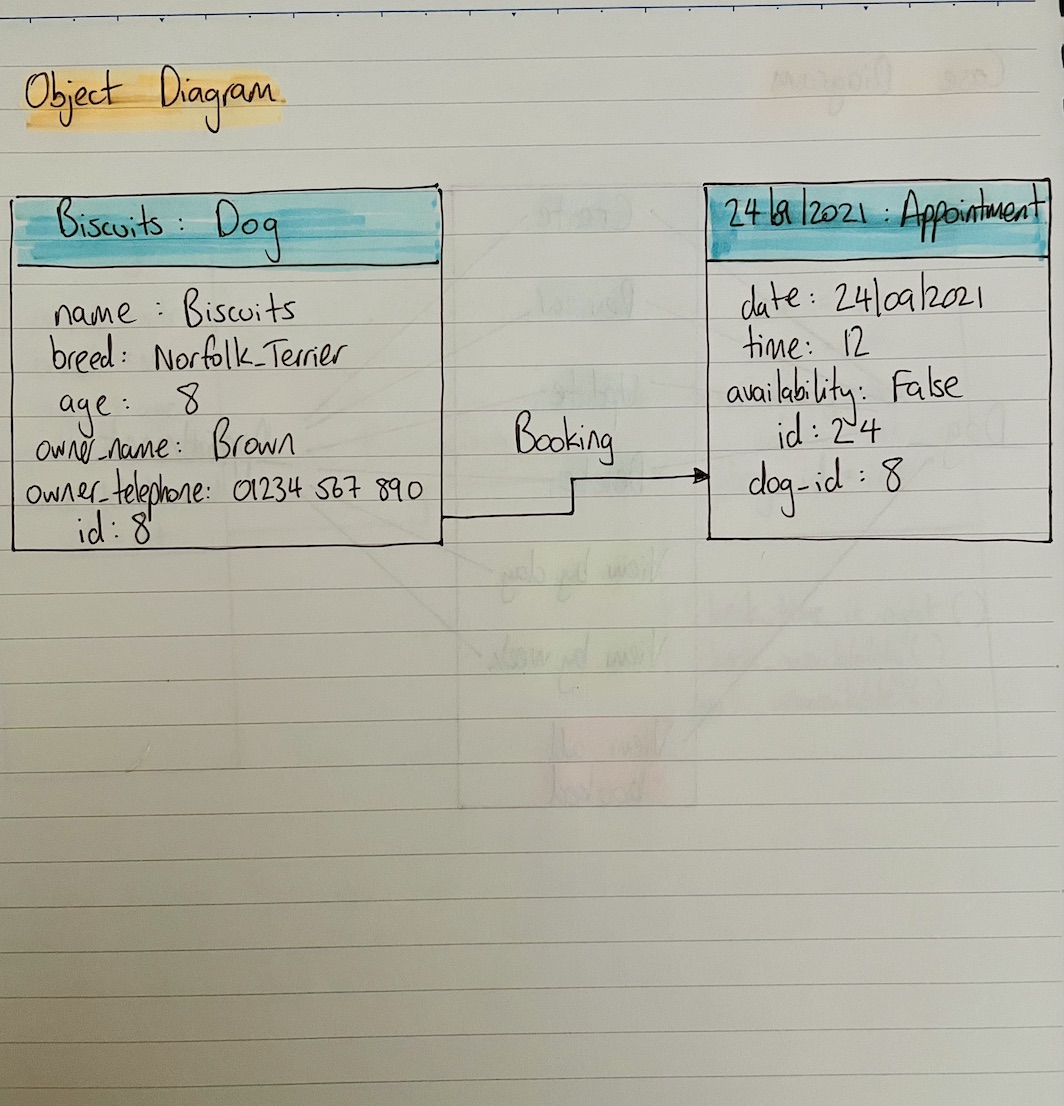 Object Diagram
Biscuits: Dog
name : Biscuits
breed: Norfolk_Terrier
age: 8
owner_name: Brown
owner_telephone: 01234 567 890
id: 8
Booking
24/09/2021 : Appointment
date: 24/09/2021
time: 12
availability: False
id: 24
dog_id: 8